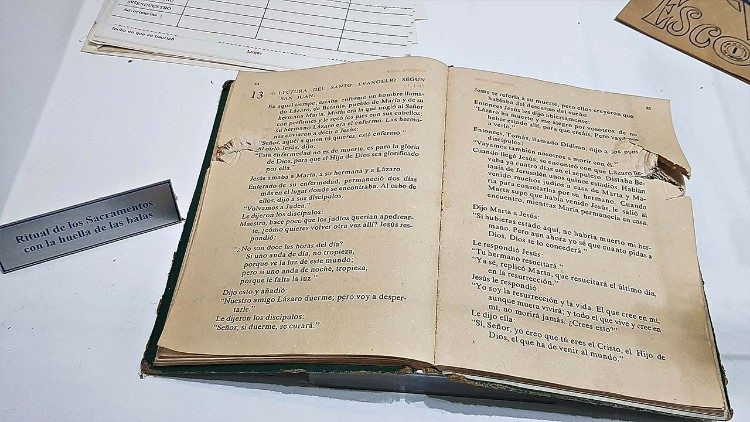 REENCUENTRO
Lugar:
ESCO
Ritual de los Sacramentos
con la huella de las balas
84
13 LECTURA DEL SANTO EVANGELIO SEGUN
SAN JUAN.
En aquel tiempo, estaba enfermo un hombre llama-
do Lázaro, de Betania, pueblo de María y de su
hermana Marta. María era la que ungió al Señor
con perfumes y le secó los pies con sus cabellos;
su hermano Lázaro era el enfermo. Las herma-
nas enviaron a decir a Jesús:
"Señor, aquel a quien tú quieres, está enfermo."
Al oírlo Jesús, dijo:
"Esta enfermedad no es de muerte, es para la gloria
de Dios, para que el Hijo de Dios sea glorificado
por ella.
Jesús amaba a María, a su hermana y a Lázaro.
Enterado de su enfermedad, permaneció dos días
más en el lugar donde se encontraba. Al cabo de
ellos, dijo a sus discípulos:
"Volvamos a Judea."
Le dijeron los discípulos:
Maestro, hace poco que los judíos querían apedrear-
te, ¿cómo quieres volver otra vez allí? Jesús res-
pondió:
"¿No son doce las horas del día?
Si uno anda de día, no tropieza,
porque ve la luz de este mundo;
pero si uno anda de noche, tropieza,
porque le falta la luz"
Dijo esto y añadió:
"Nuestro amigo Lázaro duerme; pero voy a desper-
tarle.
Le dijeron los discípulos:
"Señor, si duerme, se curará."
85
Jesús se refería a su muerte, pero ellos creyeron que
hablaba del descanso del sueño.
Entonces Jesús les dijo abiertamente:
"Lázaro ha muerto y me alegro por vosotros de no
haber estado allí, para que creáis. Pero vayamos
a verle."
Entonces, Tomás, llamado Dídimo, dijo a los otros
"Vayamos también nosotros a morir con él."
Cuando llegó Jesús, se encontró con que Lázaro lle-
vaba ya cuatro días en el sepulcro. Distaba Be-
tania de Jerusalén unos quince estadios. Habían
venido muchos judíos a casa de Marta y Ma-
ría para consolarlas por su hermano. Cuando
Marta supo que había venido Jesús, le salió al
encuentro, mientras María permanecía en casa.
Dijo Marta a Jesús:
"Si hubieras estado aquí, no habría muerto mi her-
mano. Pero aun ahora yo sé que cuanto pidas a
Dios, Dios te lo concederá."
Le respondió Jesús:
"Tu hermano resucitará."
"Ya sé, replicó Marta, que resucitará el último día,
en la resurrección."
Jesús le respondió:
"Yo soy la resurrección y la vida. El que cree en mí,
aunque muera vivirá; y todo el que vive y cree en
mí, no morirá jamás. ¿Crees esto?"
Le dijo ella:
"Sí, Señor, yo creo que tú eres el Cristo, el Hijo de
Dios, el que ha de venir al mundo."